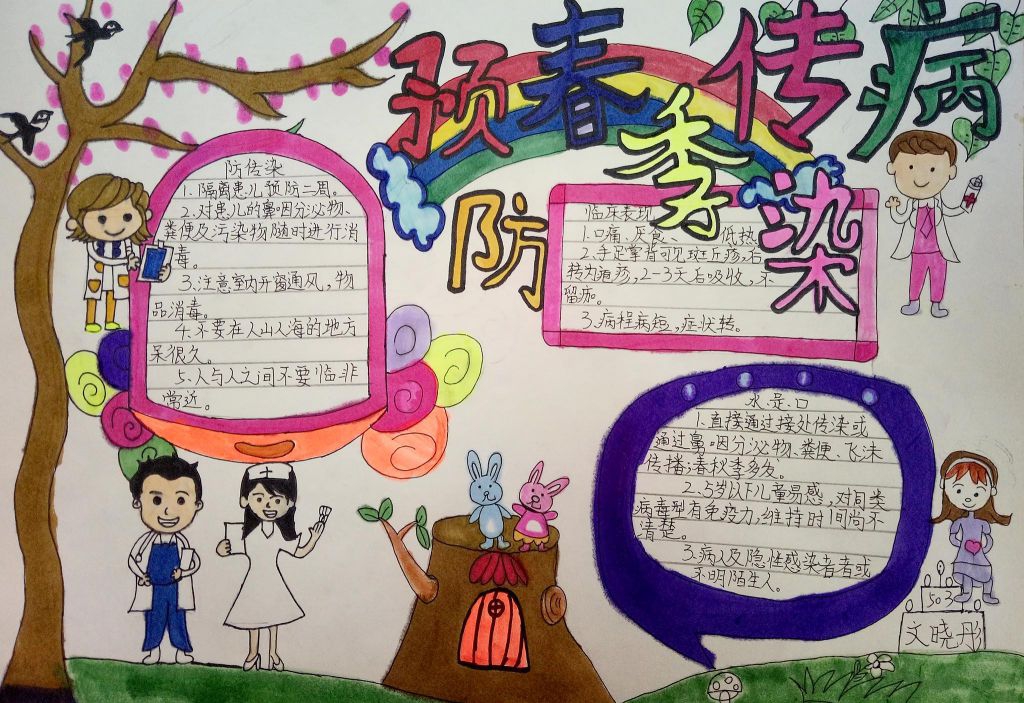 预防春季传染病
防传染
1.隔离患儿预防二周。
2.对患儿的鼻咽分泌物、
粪便及污染物随时进行消
毒。
3.注意室内开窗通风，物
品消毒。
4.不要在人山人海的地方
呆很久。
5.人与人之间不要临非
常近。
临床表现
1.口痛、厌食、 低热
2.手足掌背可见斑丘疹，后
转为疱疹，2-3天后吸收，不
留痂。
3.病程短，症状转。
1.直接通过接处传染或
通过鼻咽分泌物、粪便、飞沫
传播；春秋季多发。
2.5岁以下儿童易感，对同类
病毒型有免疫力，维持时间尚不
清楚。
3.病人及隐性感染者者或
不明陌生人。
503
文晓彤